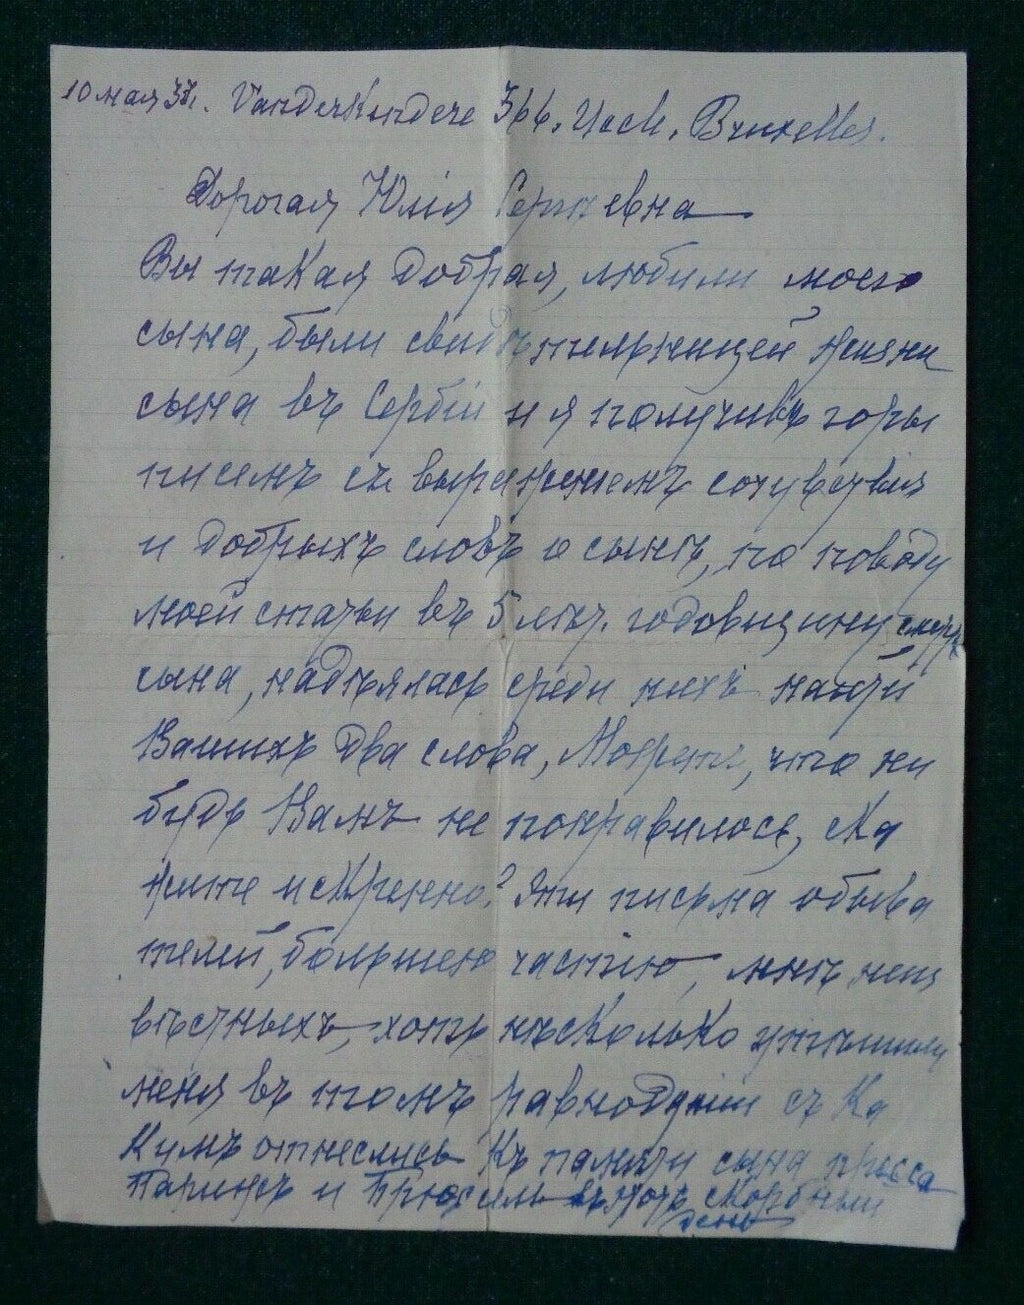 10 мая 33г. VanderKindere 366. Uccle. Bruxelles.
Дорогая Юлія Сергѣевна
Вы такая добрая, любили моего
сына, были свидѣтельницей жизни
сына въ Сербіи и я получивъ горы
писемъ съ выраженіемъ сочувствія
и добрыхъ словъ о сынѣ, по поводу
моей статьи въ 5 лѣт. годовщину смерти
сына, надѣялась среди нихъ найти
Вашихъ два слова, Можетъ, что ни
будь Вамъ не понравилось, ска
жите искренно? Эти письма обыва
телей, большею частію, мнѣ неиз
вѣстныхъ, хоть нѣсколько утѣшили
меня въ томъ равнодушіи съ ка
кимъ отнеслись къ памяти сына пресса
Парижъ и Брюссель въ этотъ скорбный
день